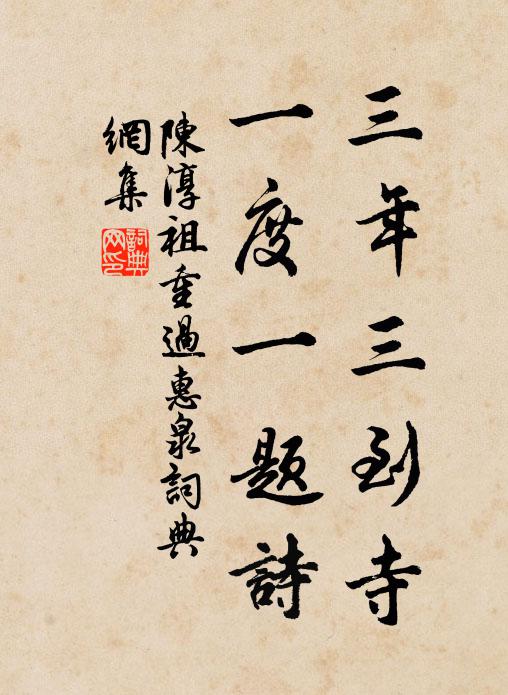 三年三到寺
一度一題詩
陳淳祖重過惠泉詞典
網集
詞典
网印